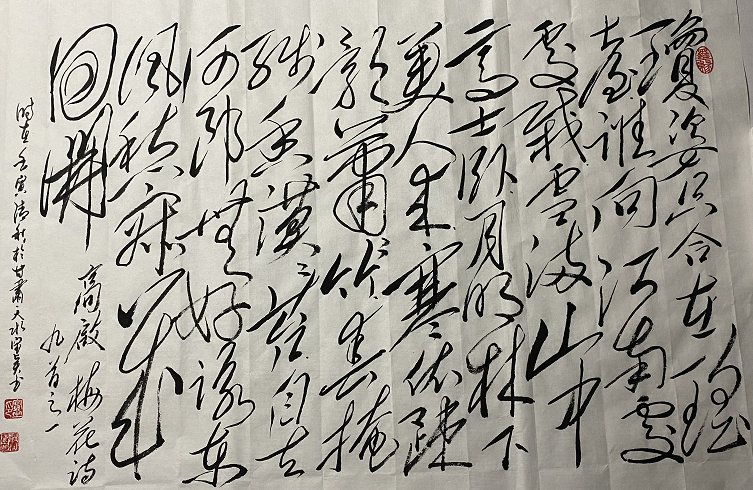 瓊姿只合在瑶
臺誰向江南處
處栽雪满山中
高士卧月明林下
美人来寒依疎
影蕭蕭竹春掩
残香漠漠苔自去
何郎無好詠東
風愁寂幾
回開
高啟梅花詩
九首之一
时在壬寅清秋於甘肅天水书